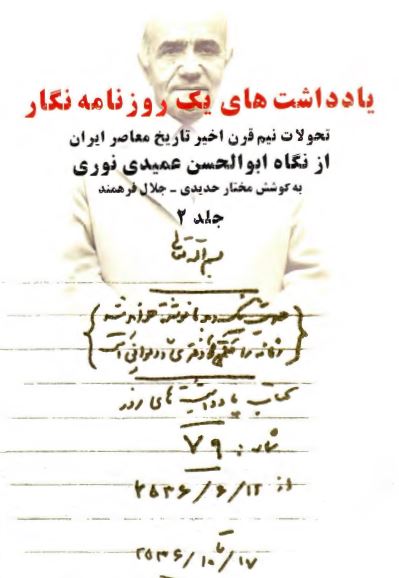 یادداشت های یک روزنامه نگار
تحولات نیم قرن اخیر تاریخ معاصر ایران
از نگاه ابوالحسن عمیدی نوری
به کوشش مختار حدیدی - جلال فرهمند
جلد ۲
بسم الله تعالی
کتاب یادداشت های روز
شماره: ۷۹
از ۲۵۳۶/۶/۱۲
تا
۲۵۳۶/۱۰/۱۷